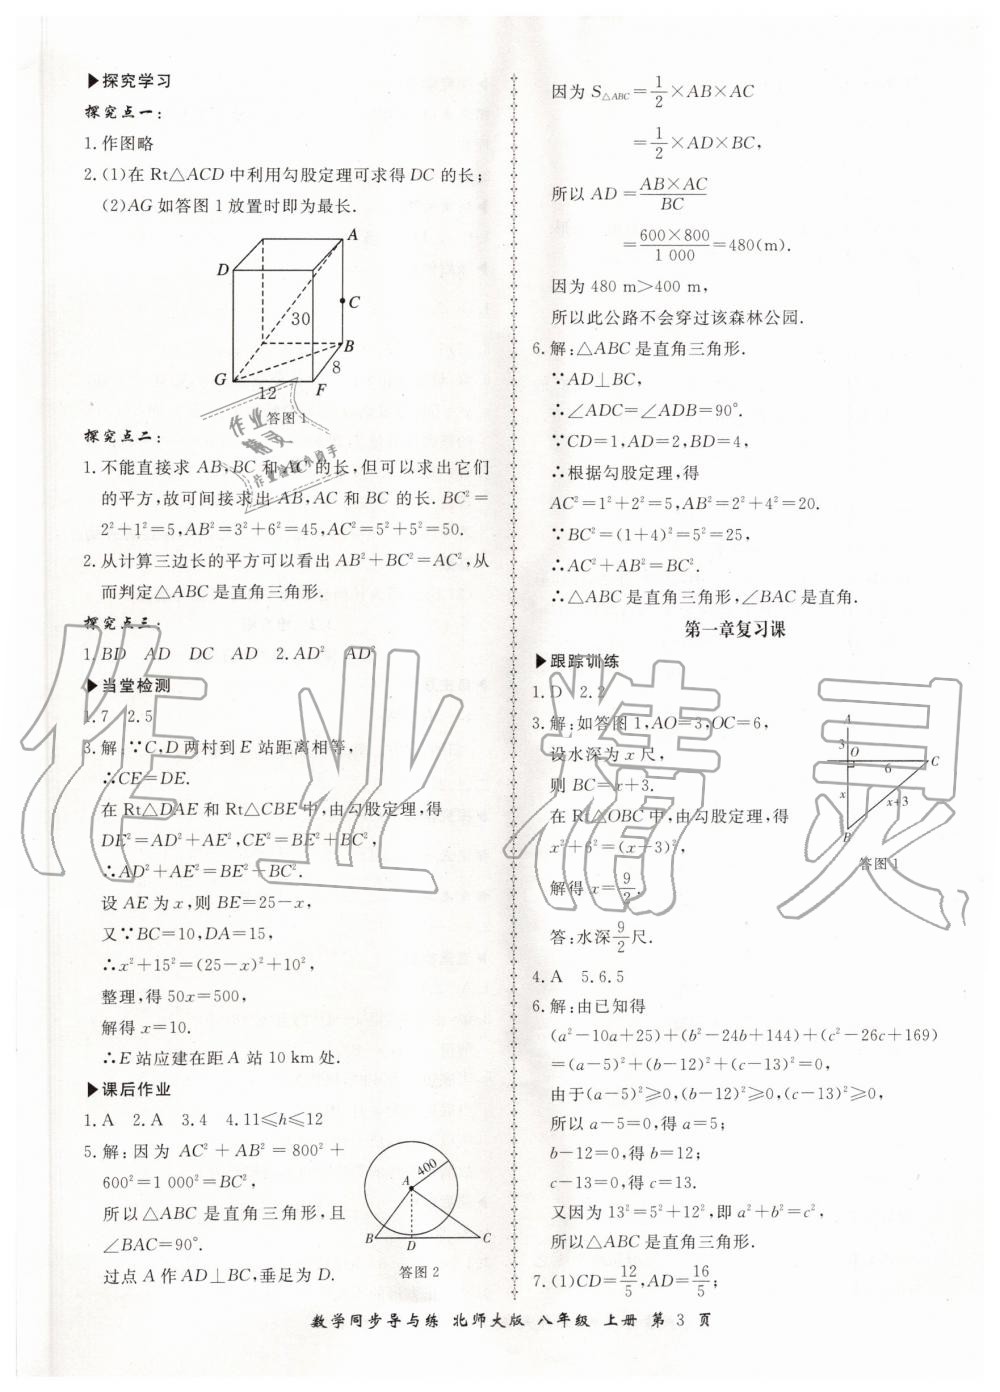 ▶探究学习
探究点一:
1.作图略
2.(1)在 Rt△ACD 中利用勾股定理可求得 DC 的长;
(2)AG 如答图 1 放置时即为最长.
A
D
C
30
B
8
G
12
F
答图 1
探究点二:
1.不能直接求 AB,BC 和 AC 的长,但可以求出它们
的平方,故可间接求出 AB,AC 和 BC 的长. BC²=
2²+1²=5,AB²=3²+6²=45,AC²=5²+5²=50.
2.从计算三边长的平方可以看出 AB²+BC²=AC²,从
而判定△ABC 是直角三角形.
探究点三:
1.BD AD DC AD 2.AD² AD²
▶当堂检测
1.7 2.5
3.解:∵C,D 两村到 E 站距离相等,
∴CE=DE.
在 Rt△DAE 和 Rt△CBE 中,由勾股定理,得
DE²=AD²+AE²,CE²=BE²+BC²,
∴AD²+AE²=BE²+BC².
设 AE 为 x,则 BE=25-x,
又∵BC=10,DA=15,
∴x²+15²=(25-x)²+10²,
整理,得 50x=500,
解得 x=10.
∴E 站应建在距 A 站 10 km 处.
▶课后作业
1.A 2.A 3.4 4.11≤h≤12
5.解:因为 AC²+AB²=800²+
600²=1 000²=BC²,
所以△ABC 是直角三角形,且
∠BAC=90°.
过点 A 作 AD⊥BC,垂足为 D.
400
A
B
D
C
答图 2
因为 S△ABC=1/2×AB×AC
=1/2×AD×BC,
所以 AD=AB×AC/BC
=600×800/1 000=480(m).
因为 480 m>400 m,
所以此公路不会穿过该森林公园.
6.解:△ABC 是直角三角形.
∵AD⊥BC,
∴∠ADC=∠ADB=90°.
∵CD=1,AD=2,BD=4,
∴根据勾股定理,得
AC²=1²+2²=5,AB²=2²+4²=20.
∵BC²=(1+4)²=5²=25,
∴AC²+AB²=BC².
∴△ABC 是直角三角形,∠BAC 是直角.
第一章复习课
▶跟踪训练
1.D 2.2
3.解:如答图 1,AO=3,OC=6,
设水深为 x 尺,
则 BC=x+3.
在 Rt△OBC 中,由勾股定理,得
x²+6²=(x+3)²,
解得 x=9/2.
答:水深9/2尺.
A
3
O
C
6
x
x+3
B
答图 1
4.A 5.6.5
6.解:由已知得
(a²-10a+25)+(b²-24b+144)+(c²-26c+169)
=(a-5)²+(b-12)²+(c-13)²=0,
由于(a-5)²≥0,(b-12)²≥0,(c-13)²≥0,
所以 a-5=0,得 a=5;
b-12=0,得 b=12;
c-13=0,得 c=13.
又因为 13²=5²+12²,即 a²+b²=c²,
所以△ABC 是直角三角形.
7.(1)CD=12/5,AD=16/5;
数学同步导与练 北师大版 八年级 上册 第 3 页
作业精灵